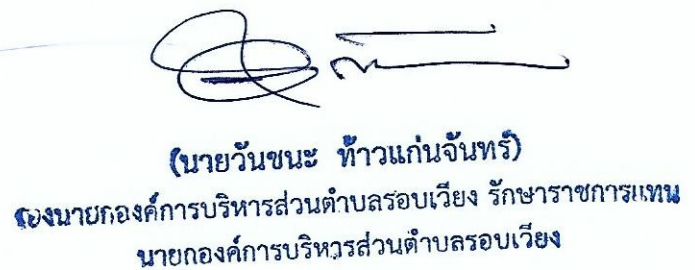 (นายวันชนะ ท้าวแก่นจันทร์)
รองนายกองค์การบริหารส่วนตำบลรอบเวียง รักษาราชการแทน
นายกองค์การบริหารส่วนตำบลรอบเวียง